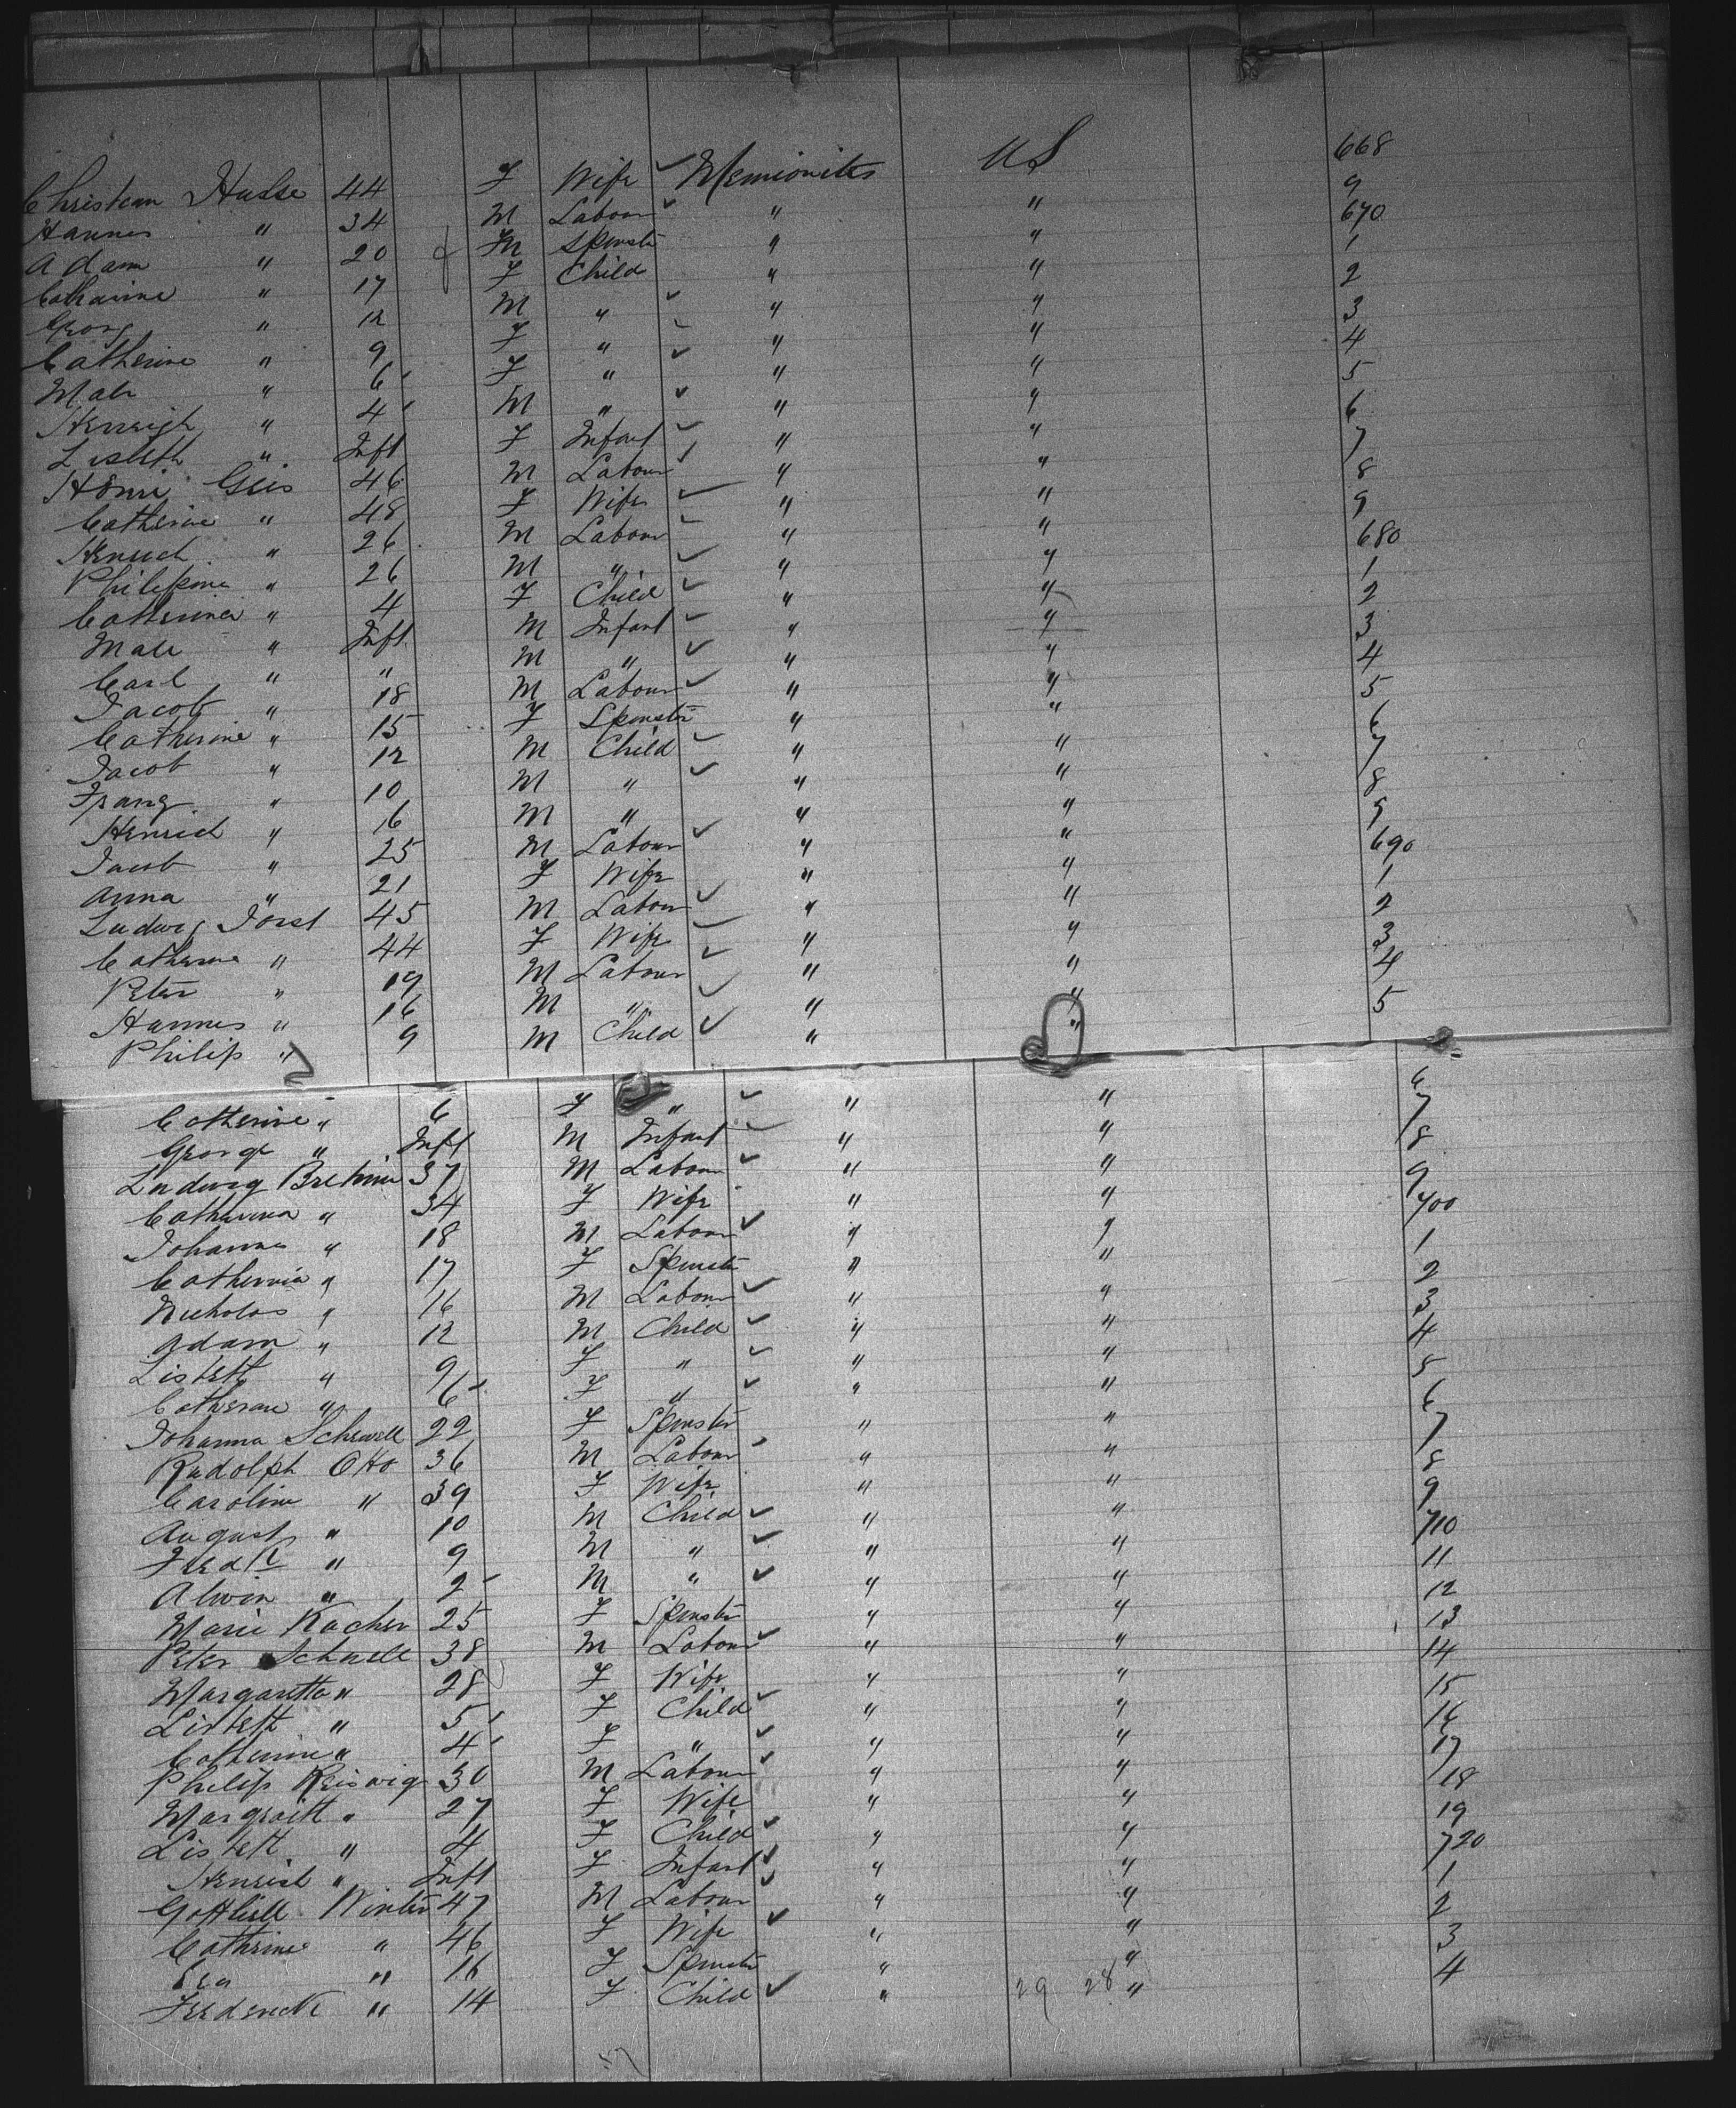 Christian Hudse 44 F Wife ✓ Mennonites US 668
Hannes " 34 M Labour ✓ " " 9
Adam " 20 M Spinster " " 670
Catharine " 17 F Child " " 1
Georg " 12 M " ✓ " " 2
Catherine " 9 F " ✓ " " 3
Male " 6 F " ✓ " " 4
" 4 M " ✓ " " 5
Lisbeth " Inft F Infant ✓ " " 6
Henri Geis 46 M Labour ✓ " " 7
Catherine " 48 F Wife ✓ " " 8
Henrich " 26 M Labour ✓ " " 9
Philippine " 26 M " ✓ " " 680
Catherina " 4 F Child ✓ " " 1
Male " Inft M Infant ✓ " " 2
Carl " " M " ✓ " " 3
Jacob " 18 M Labour ✓ " " 4
Catherine " 15 F Spinster " " 5
Jacob " 12 M Child ✓ " " 6
Franz " 10 M " ✓ " " 7
Henrich " 16 M " " " 8
Jacob " 25 M Labour ✓ " " 9
Anna " 21 F Wife " " 690
Ludwig Jorst 45 M Labour ✓ " " 1
Catherine " 44 F Wife ✓ " " 2
Peter " 19 M Labour ✓ " " 3
Hannes " 16 M " ✓ " " 4
Philip " 9 M Child ✓ " " 5
Catherine " 6 F " ✓ " " 6
George " Inft M Infant ✓ " " 7
Ludwig 37 M Labour ✓ " " 8
Catharina " 34 F Wife " " 9
Johannes " 18 M Labour ✓ " " 700
Catherina " 17 F Spinster " " 1
Nicholas " 16 M Labour ✓ " " 2
Adam " 12 M Child ✓ " " 3
Lisbeth " 9 F " ✓ " " 4
Catherine " 6 F " ✓ " " 5
Johanna Schwell 22 F Spinster " " 6
Rudolph Otto 36 M Labour " " 7
Caroline " 39 F Wife " " 8
August " 10 M Child ✓ " " 9
Fredk " 9 M " ✓ " " 710
Alwin " 2 M " ✓ " " 11
Marie Kacher 25 F Spinster " " 12
Peter Schnell 38 M Labour ✓ " " 13
Margaretta " 28 F Wife " " 14
Lisbeth " 5 F Child ✓ " " 15
Catherine " 4 F " ✓ " " 16
Philip Reiswig 30 M Labour ✓ " " 17
Margrath " 27 F Wife " " 18
Lisbeth " 4 F Child ✓ " " 19
Henrich " Inft F Infant ✓ " " 720
Gottlieb Winter 47 M Labour ✓ " " 1
Cathrine " 46 F Wife ✓ " " 2
Eva " 16 F Spinster " " 3
Frederick " 14 F Child ✓ " 29 28 " 4